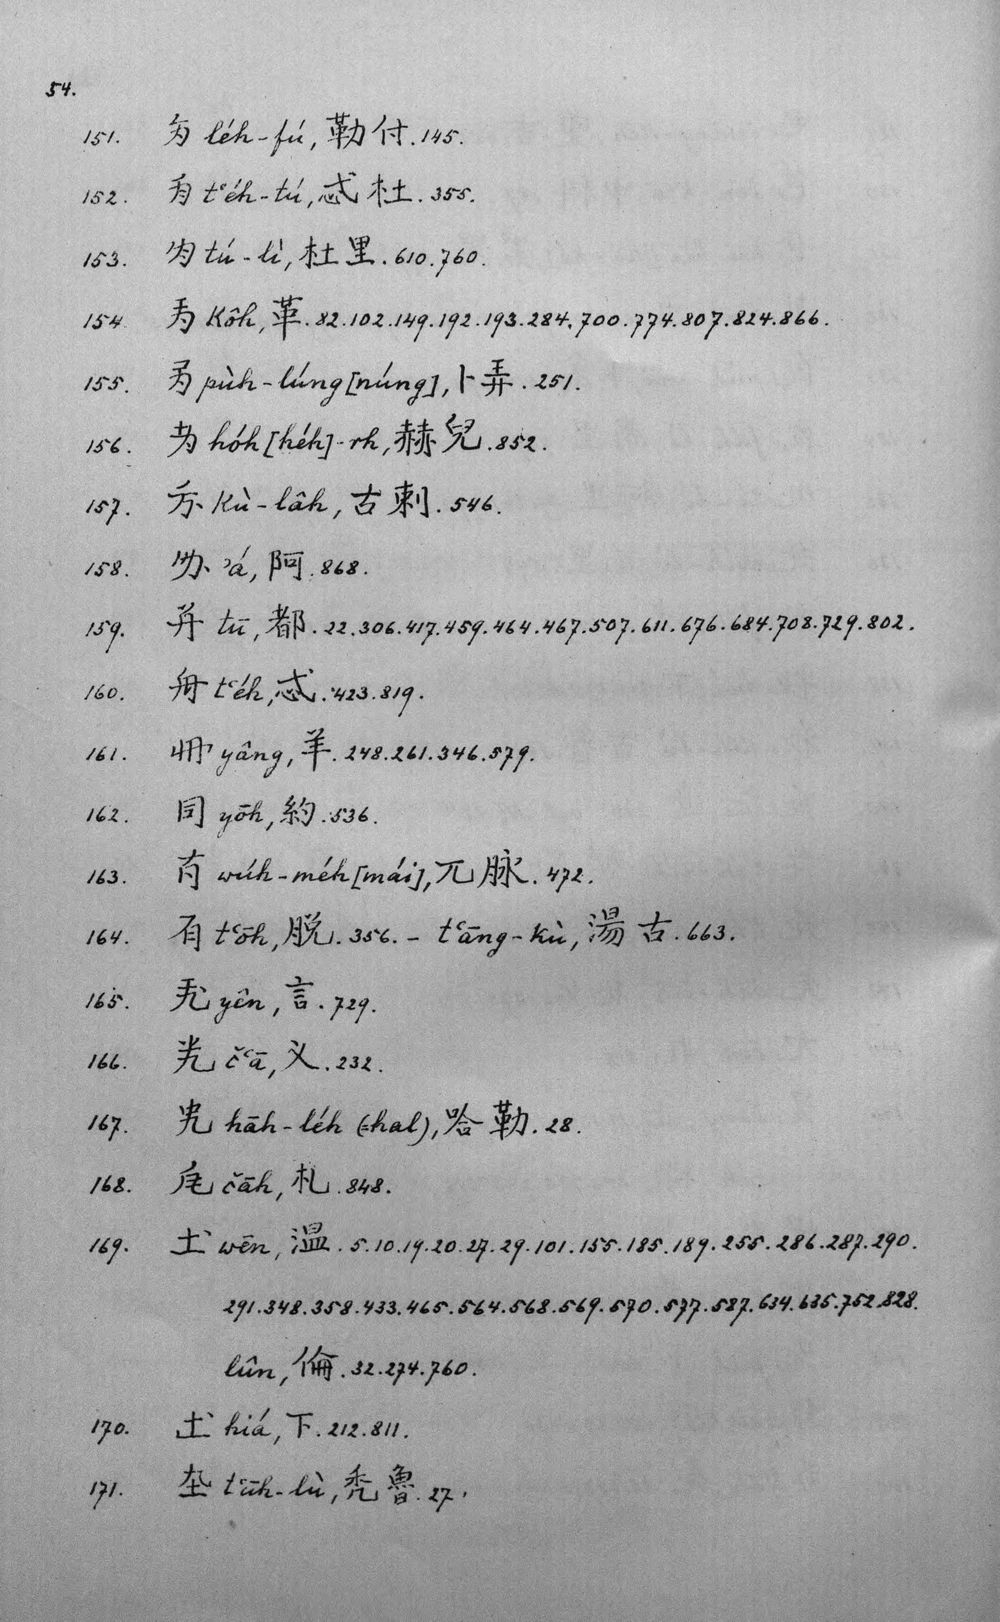 54.
151. léh-fú, 勒付. 145.
152. tʿéh-tú, 忒杜. 355.
153. tú-lì, 杜里. 610. 760.
154. Kôh, 革. 82. 102. 149. 192. 193. 284. 700. 774. 807. 824. 866.
155. pùh-lúng [núng], 卜弄. 251.
156. hóh [héh]-rh, 赫兒. 852.
157. Kù-lâh, 古剌. 546.
158. ʾá, 阿. 868.
159. tū, 都. 22. 306. 417. 459. 464. 467. 507. 611. 676. 684. 708. 729. 802.
160. tʿéh, 忒. 423. 819.
161. yâng, 羊. 248. 261. 346. 579.
162. yōh, 約. 536.
163. wúh-méh [mái], 兀脉. 472.
164. tʿōh, 脱. 356. – tʿāng-Kù, 湯古. 663.
165. yên, 言. 729.
166. čʿā, 义. 232.
167. hāh-léh (=hal), 哈勒. 28.
168. čāh, 札. 848.
169. wēn, 溫. 5. 10. 19. 20. 27. 29. 101. 155. 185. 189. 255. 286. 287. 290.
291. 348. 358. 433. 465. 564. 568. 569. 570. 577. 587. 634. 635. 752. 828.
lûn, 倫. 32. 274. 760.
170. hiá, 下. 212. 811.
171. tʿūh-lù, 秃魯. 27.